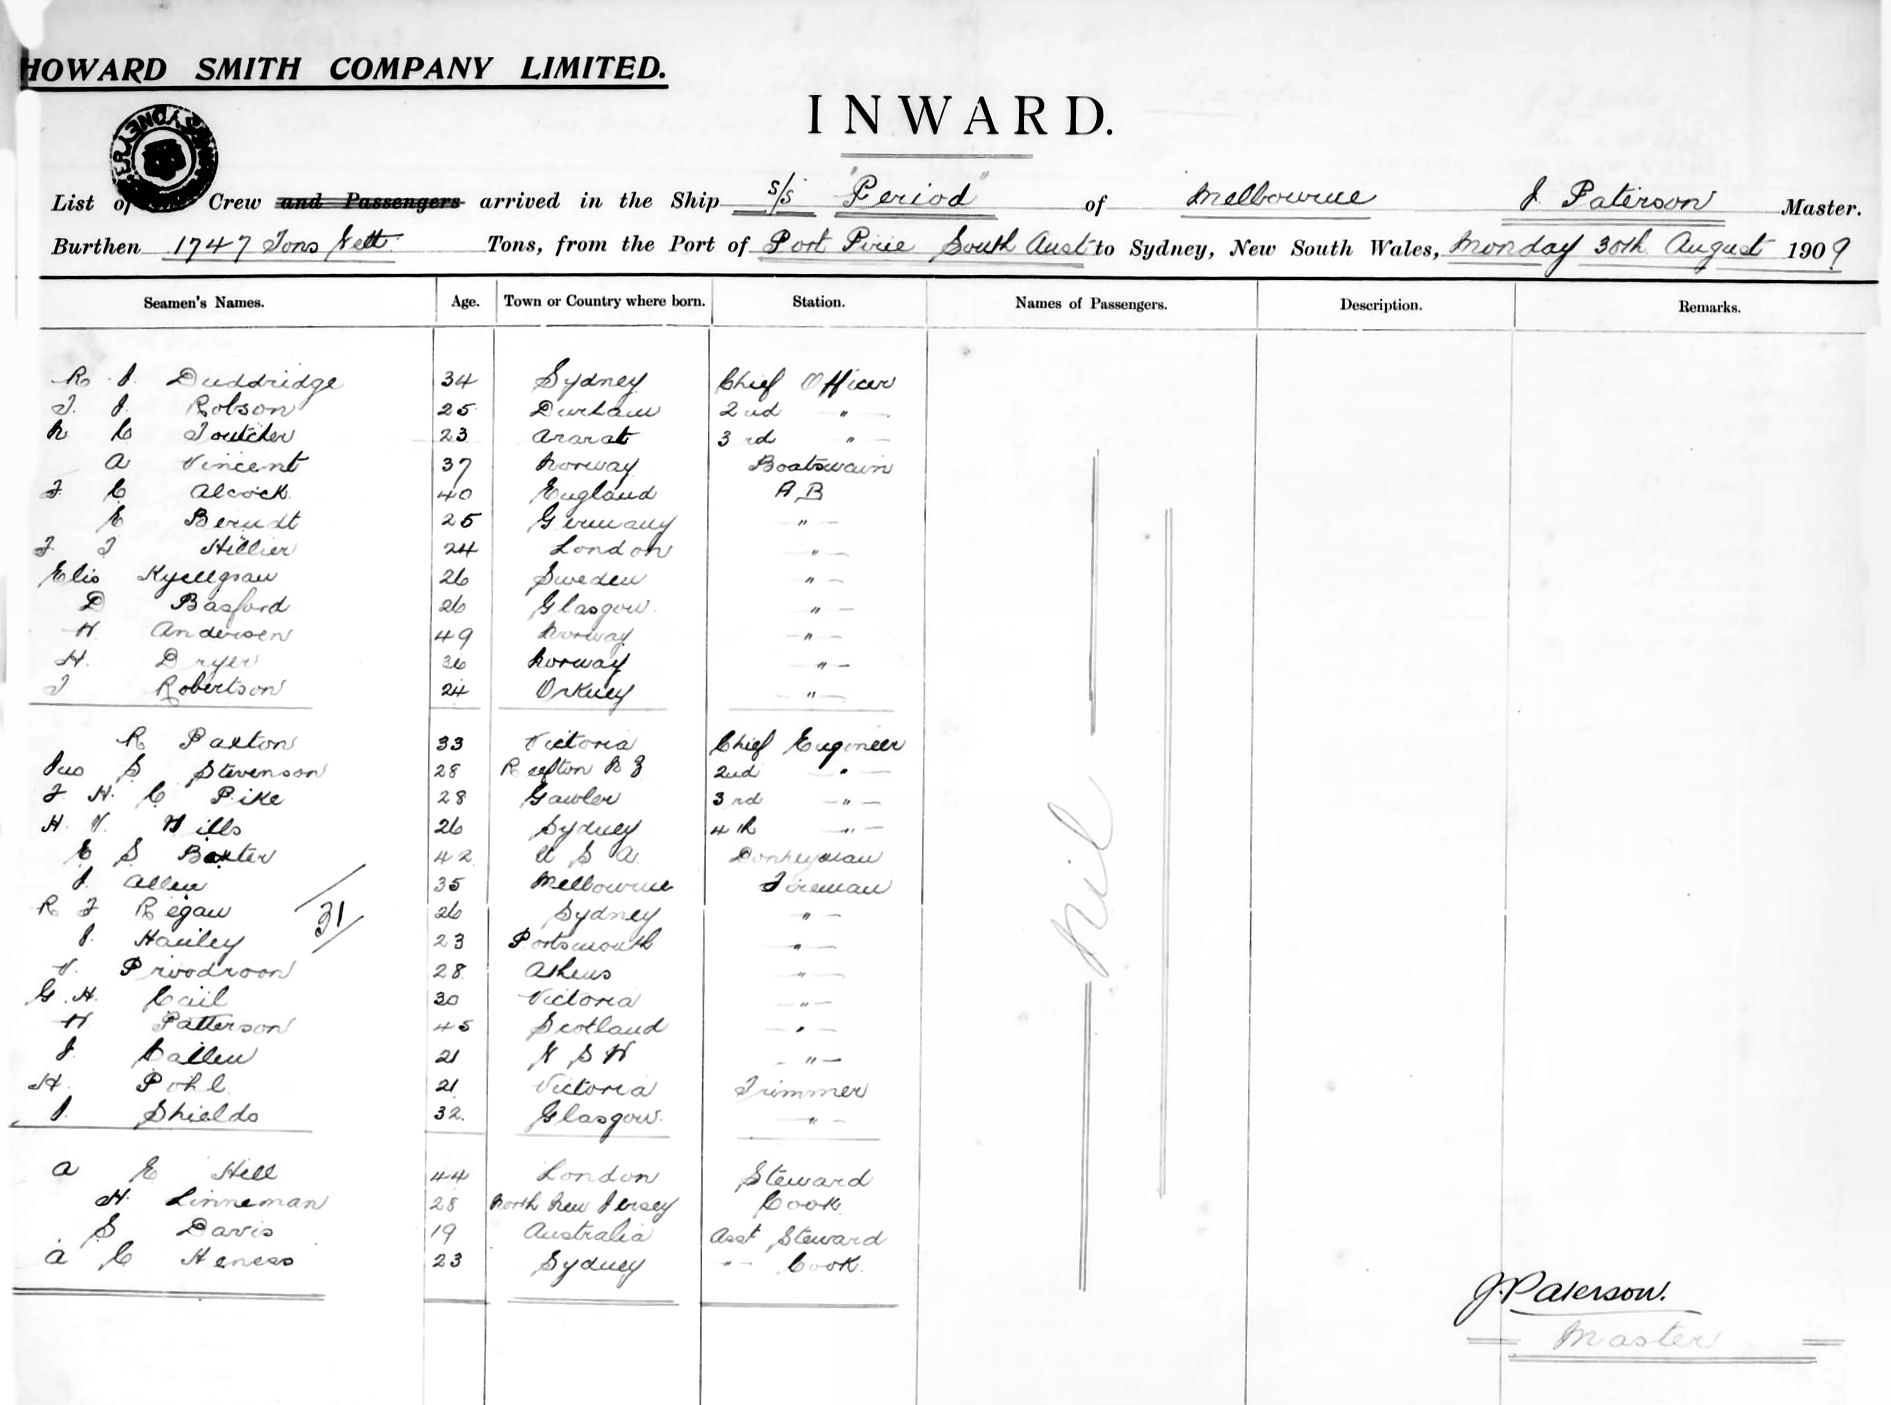 HOWARD SMITH COMPANY LIMITED.
INWARD.
List of Crew and Passengers arrived in the Ship s/s "Period" of Melbourne J Paterson Master.
Burthen 1747 Tons Nett Tons, from the Port of Port Pirie South Aust to Sydney, New South Wales, Monday 30th August 1909
Seamen's Names. Age. Town or Country where born. Station. Names of Passengers. Description. Remarks.
R J Duddridge 34 Sydney Chief Officer
J. J. Robson 25 Durham 2nd "
N C Toutcher 23 Ararat 3rd "
A Vincent 37 Norway Boatswain
F C Alcock 40 England A.B
E Berndt 25 Germany "
F J Hillier 24 London "
Elis Kyellgran 26 Sweden "
D Basford 26 Glasgow "
H Andersen 49 Norway "
H. Dryer 26 Norway "
J Robertson 24 Orkney "
R Paxton 33 Victoria Chief Engineer
Jno S Stevenson 28 Reefton N Z 2nd "
F H C Pike 28 Gawler 3rd "
H. V. Wills 26 Sydney 4th "
E S Baxter 42 U S A Donkeyman
J. Allen 35 Melbourne Fireman
R J Regan 26 Sydney "
31
J. Hanley 23 Portsmouth "
V. 28 Athens "
G. H. Cail 30 Victoria "
H Patterson 45 Scotland "
J. Callen 21 N S W "
H. Pohl 21 Victoria Trimmer
J. Shields 32 Glasgow "
Nil
A E Hill 44 London Steward
H. Linneman 28 North New Jersey Cook
S Davis 19 Australia Asst Steward
A C Heness 23 Sydney " Cook
J. Paterson.
Master